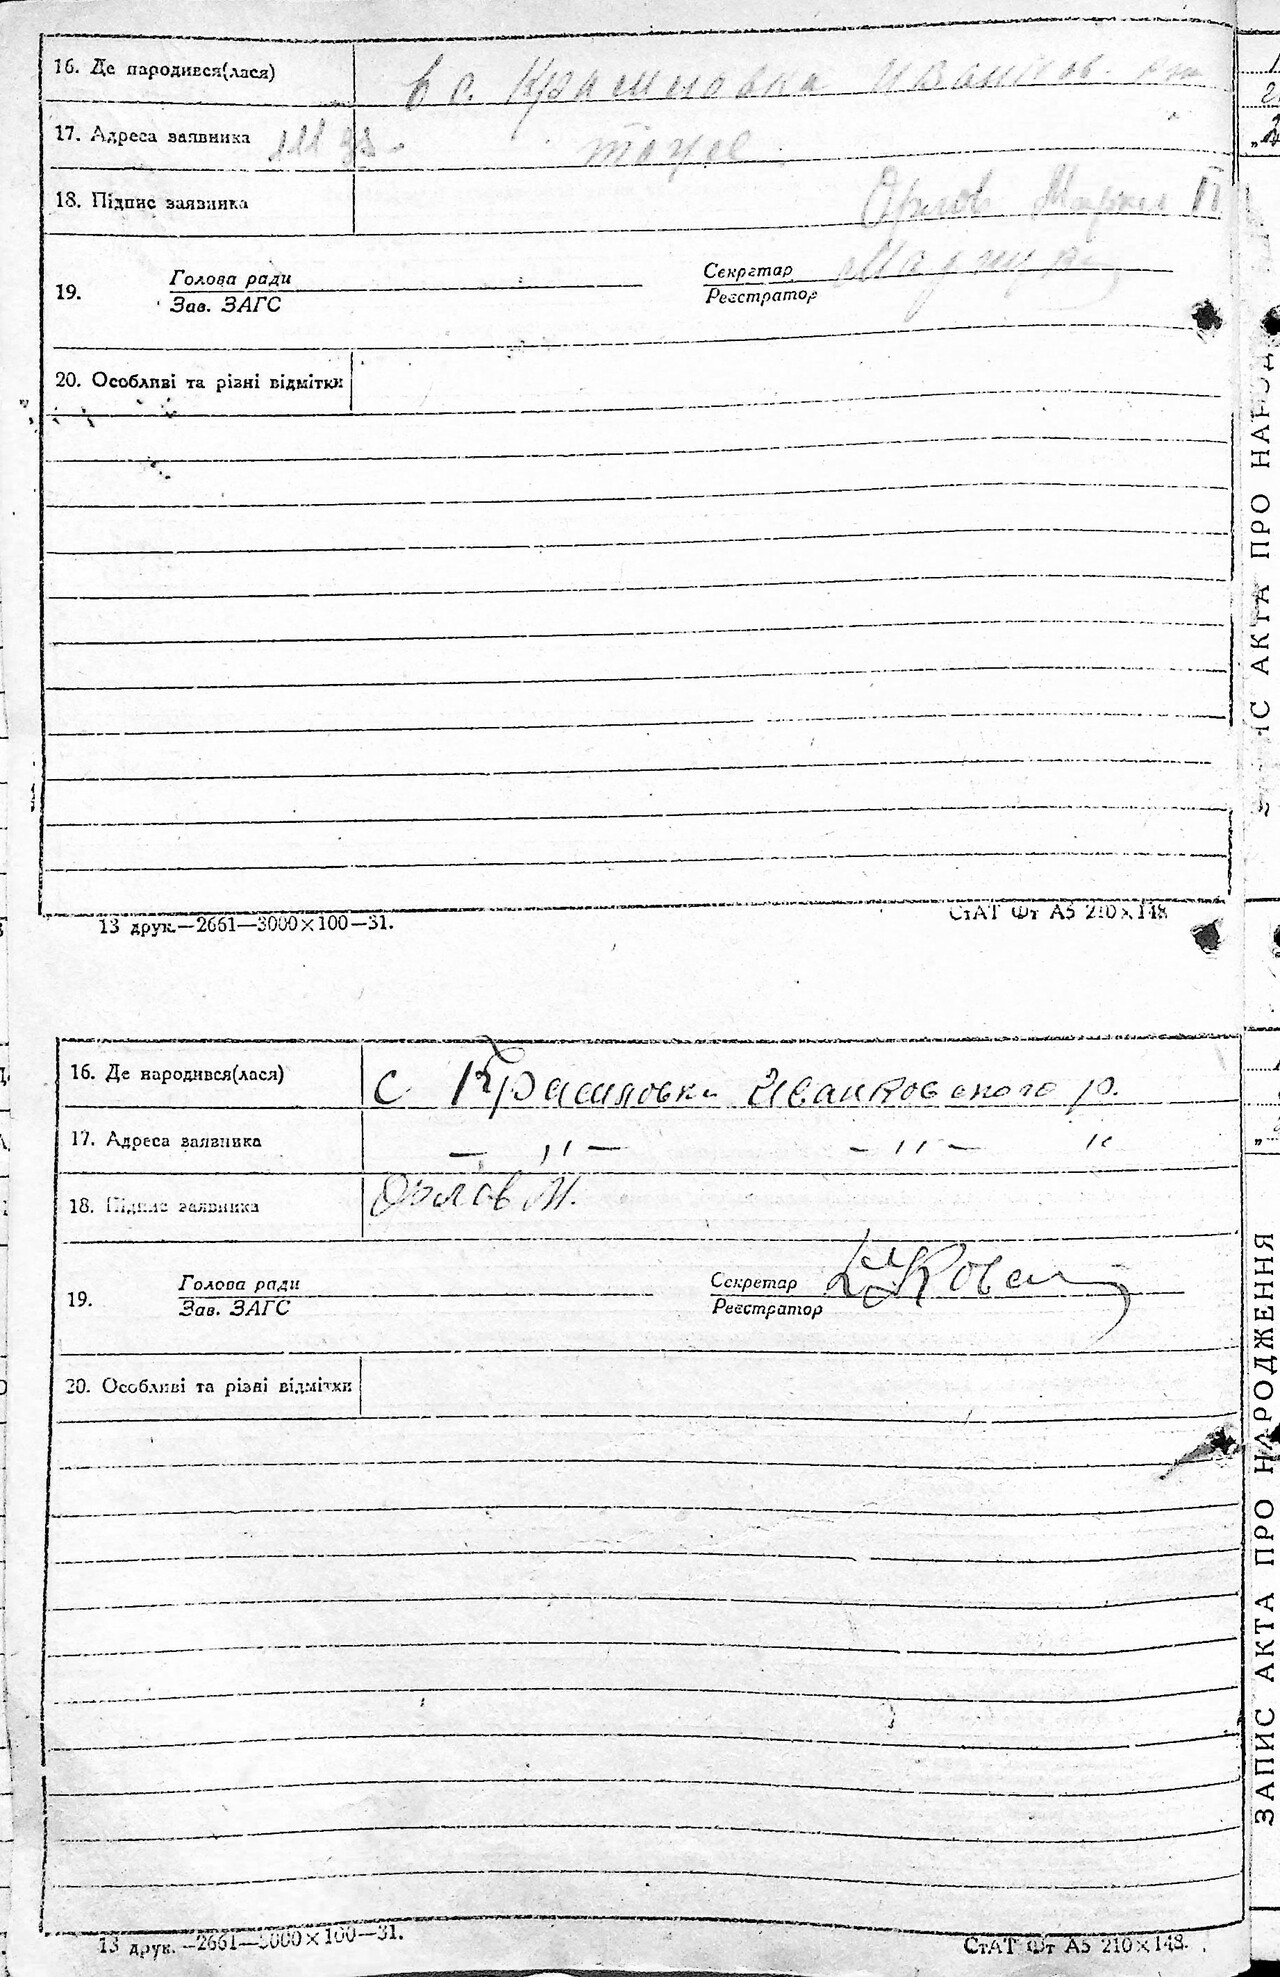 16. Де народився(лася) в с. Красиловка Иванков. р-н
17. Адреса заявника тоже
18. Підпис заявника Орлов
Голова ради
Секретар
19.
Зав. ЗАГС
Реєстратор
20. Особливі та різні відмітки
13 друк.—2661—3000×100—31.
СтАТ Фт А5 210×148
16. Де народився(лася) с Красиловка Иванковского р.
17. Адреса заявника — ,, — — ,, — "
18. Підпис заявника Орлов М.
Голова ради
Секретар
19.
Зав. ЗАГС
Реєстратор
20. Особливі та різні відмітки
13 друк.—2661—3000×100—31.
СтАТ Фт А5 210×148.
ІС АКТА ПРО НАРОД
ЗАПИС АКТА ПРО НАРОДЖЕННЯ